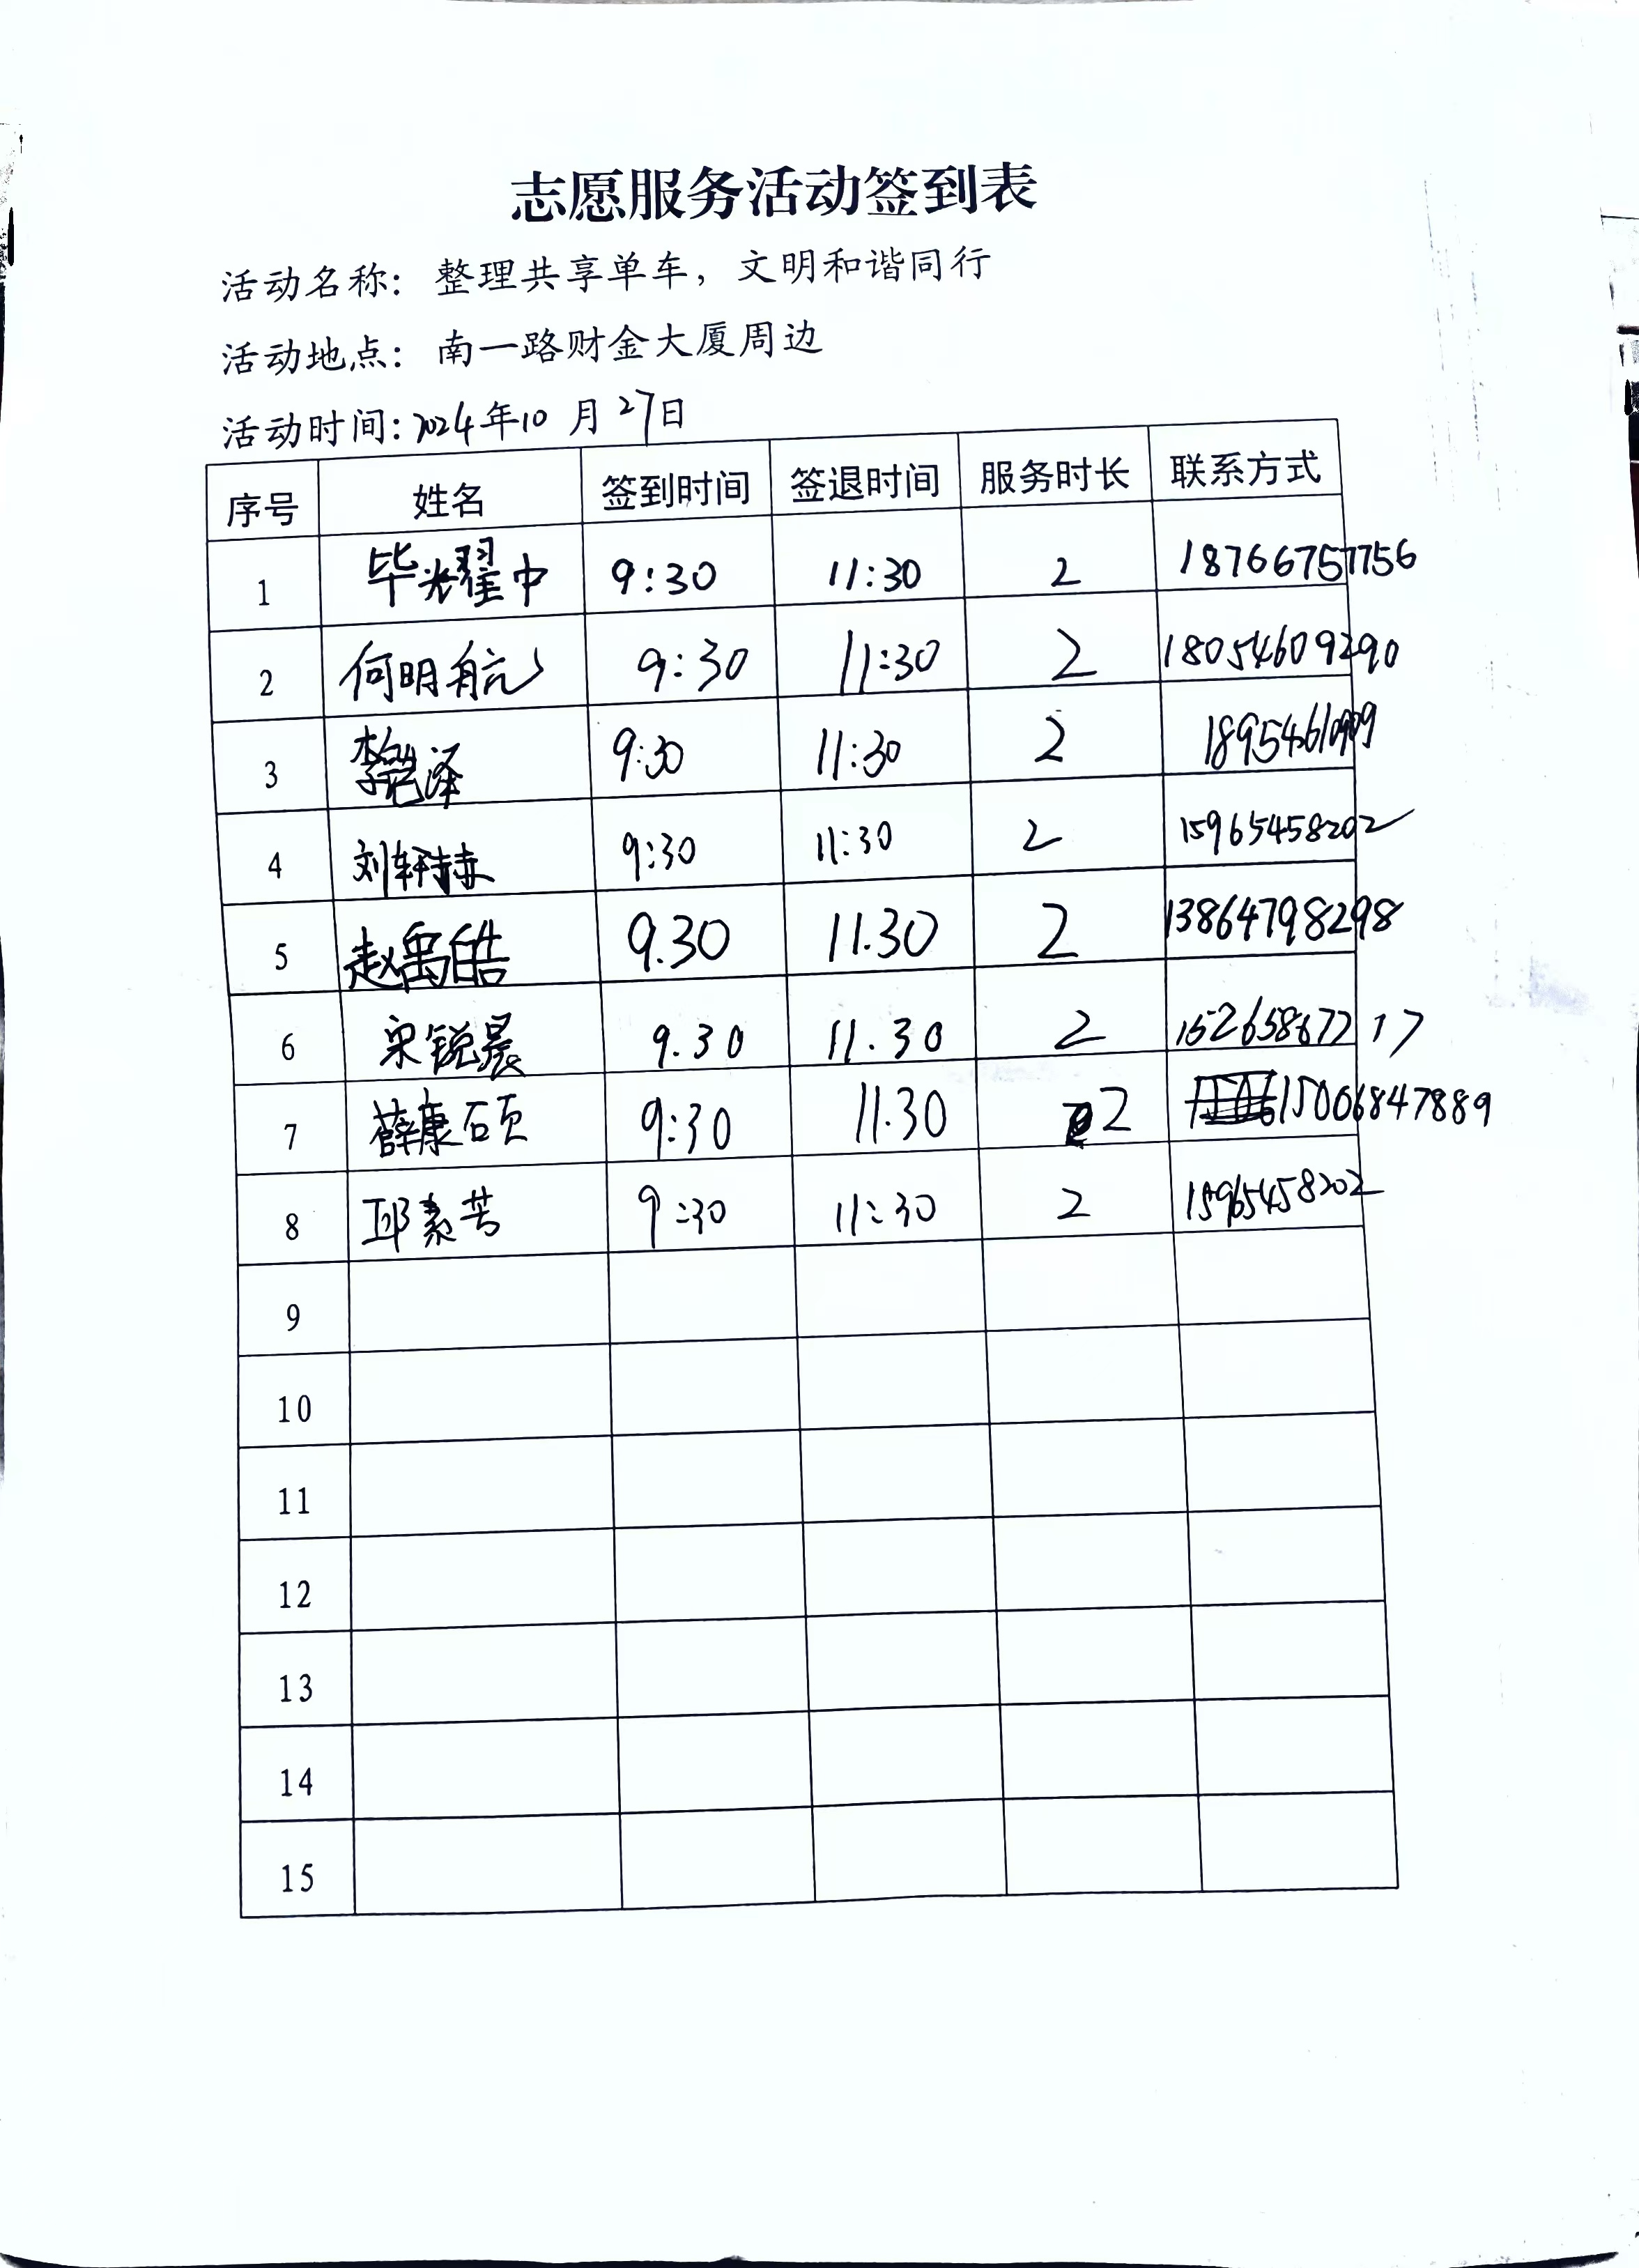 志愿服务活动签到表
活动名称：整理共享单车，文明和谐同行
活动地点：南一路财金大厦周边
活动时间：2024年10月27日
序号 姓名 签到时间 签退时间 服务时长 联系方式
1 毕耀中 9:30 11:30 2 18766757756
2 何明航 9:30 11:30 2 18054609290
3 李泽 9:30 11:30 2
4 刘轩赫 9:30 11:30 2 15965458202
5 赵禹皓 9.30 11.30 2 13864798298
6 宋锐晨 9.30 11.30 2 15265867717
7 薛康硕 9:30 11.30 2 15006847889
8 邱素芳 9:30 11:30 2 15965458202
9
10
11
12
13
14
15